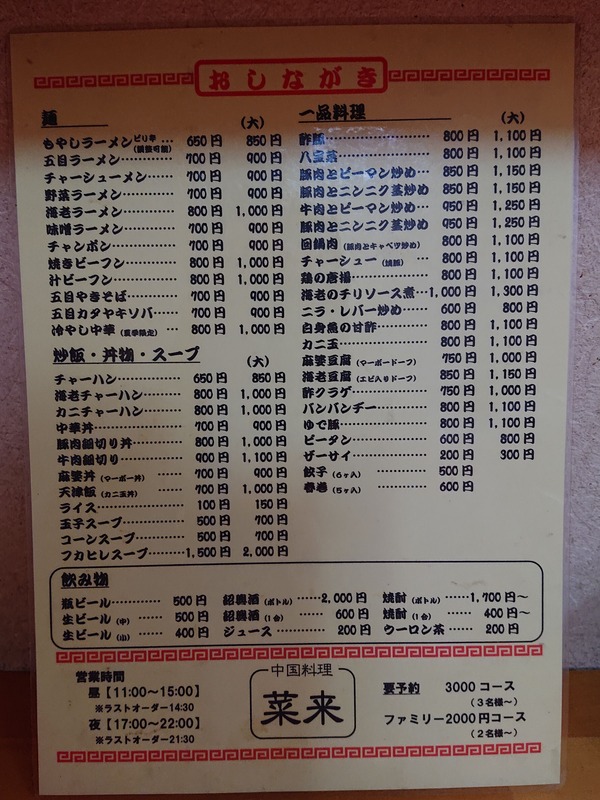 おしながき
麺 (大)
もやしラーメン ピリ辛(調整可能) … 650円 850円
五目ラーメン………… 700円 900円
チャーシューメン…… 700円 900円
野菜ラーメン………… 700円 900円
海老ラーメン………… 800円 1,000円
味噌ラーメン………… 700円 900円
チャンポン…………… 700円 900円
焼きビーフン………… 800円 1,000円
汁ビーフン…………… 800円 1,000円
五目やきそば………… 700円 900円
五目カタヤキソバ…… 700円 900円
冷やし中華(夏季限定) … 800円 1,000円
炒飯・丼物・スープ (大)
チャーハン…………… 650円 850円
海老チャーハン……… 800円 1,000円
カニチャーハン……… 800円 1,000円
中華丼………………… 700円 900円
豚肉細切り丼………… 800円 1,000円
牛肉細切り…………… 900円 1,100円
麻婆丼(マーボー丼) …… 700円 900円
天津飯(カニ玉丼) …… 700円 1,000円
ライス………………… 100円 150円
玉子スープ…………… 500円 700円
コーンスープ………… 500円 700円
フカヒレスープ………1,500円 2,000円
一品料理 (大)
酢豚…………………… 800円 1,100円
八宝菜………………… 800円 1,100円
豚肉とピーマン炒め… 850円 1,150円
豚肉とニンニク茎炒め 850円 1,150円
牛肉とピーマン炒め… 950円 1,250円
豚肉とニンニク茎炒め 950円 1,250円
回鍋肉(豚肉とキャベツ炒め) 800円 1,100円
チャーシュー(焼豚) … 800円 1,100円
鶏の唐揚……………… 800円 1,100円
海老のチリソース煮…1,000円 1,300円
ニラ・レバー炒め…… 600円 800円
白身魚の甘酢………… 800円 1,100円
カニ玉………………… 800円 1,100円
麻婆豆腐(マーボードーフ) 750円 1,000円
海老豆腐(エビ入りドーフ) 850円 1,150円
酢クラゲ……………… 750円 1,000円
バンバンヂー………… 800円 1,100円
ゆで豚………………… 800円 1,100円
ピータン……………… 600円 800円
ザーサイ……………… 200円 300円
餃子(6ヶ入) ……… 500円
春巻(5ヶ入) ……… 600円
飲み物
瓶ビール………… 500円 紹興酒(ボトル) ……2,000円 焼酎(ボトル) ……1,700円〜
生ビール(中) …… 500円 紹興酒(1合) …… 600円 焼酎(1合) …… 400円〜
生ビール(小) …… 400円 ジュース ………… 200円 ウーロン茶 …… 200円
営業時間
昼【11:00〜15:00】
※ラストオーダー14:30
夜【17:00〜22:00】
※ラストオーダー21:30
中国料理
菜来
要予約 3000コース
(3名様〜)
ファミリー2000円コース
(2名様〜)